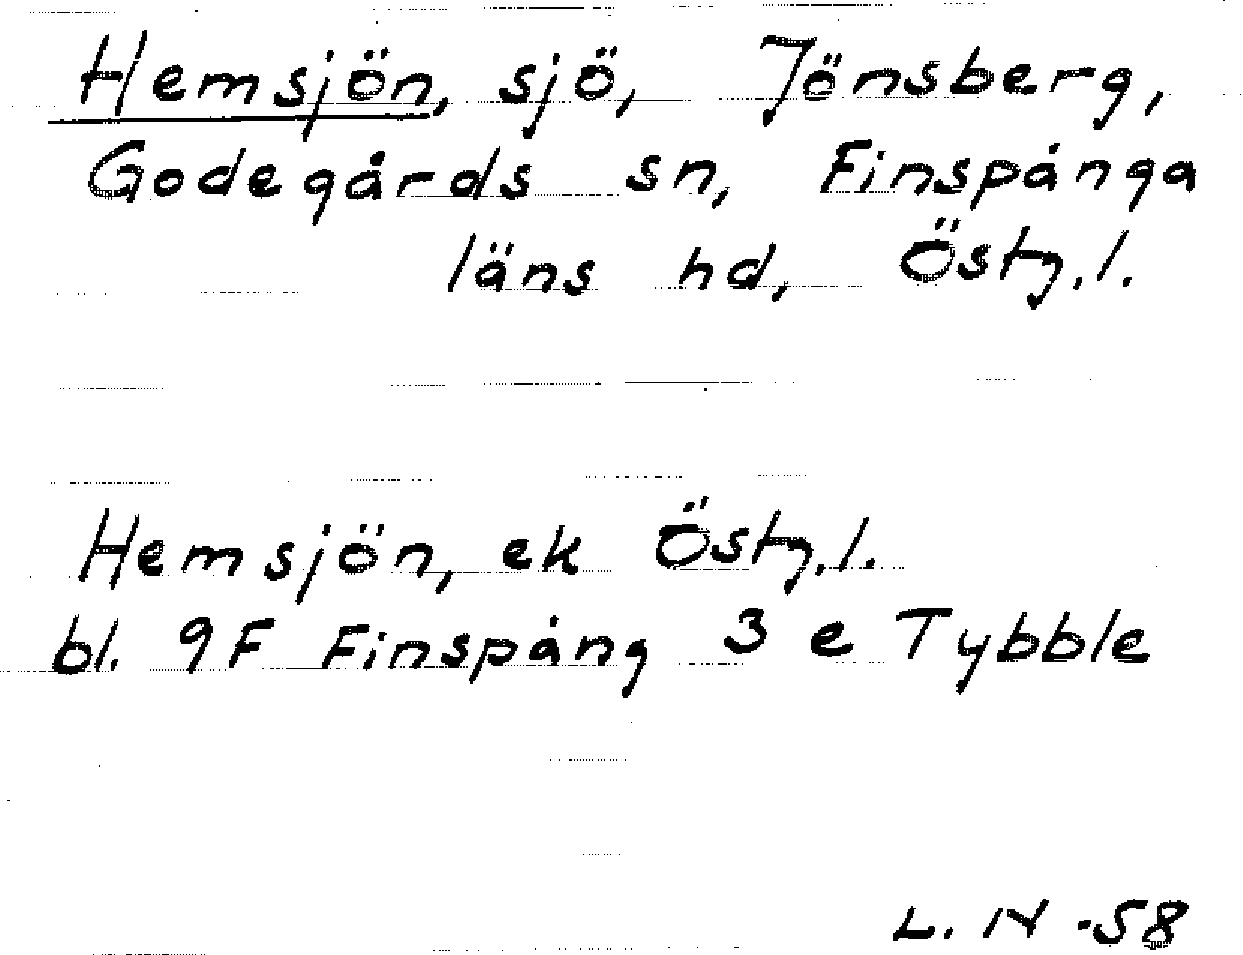 Hemsjön, sjö, Jönsberg,
Godegårds sn, Finspånga
läns hd, Östg.l.
Hemsjön, ek Östg.l.
bl. 9F Finspång 3 e Tybble
L. IN -58